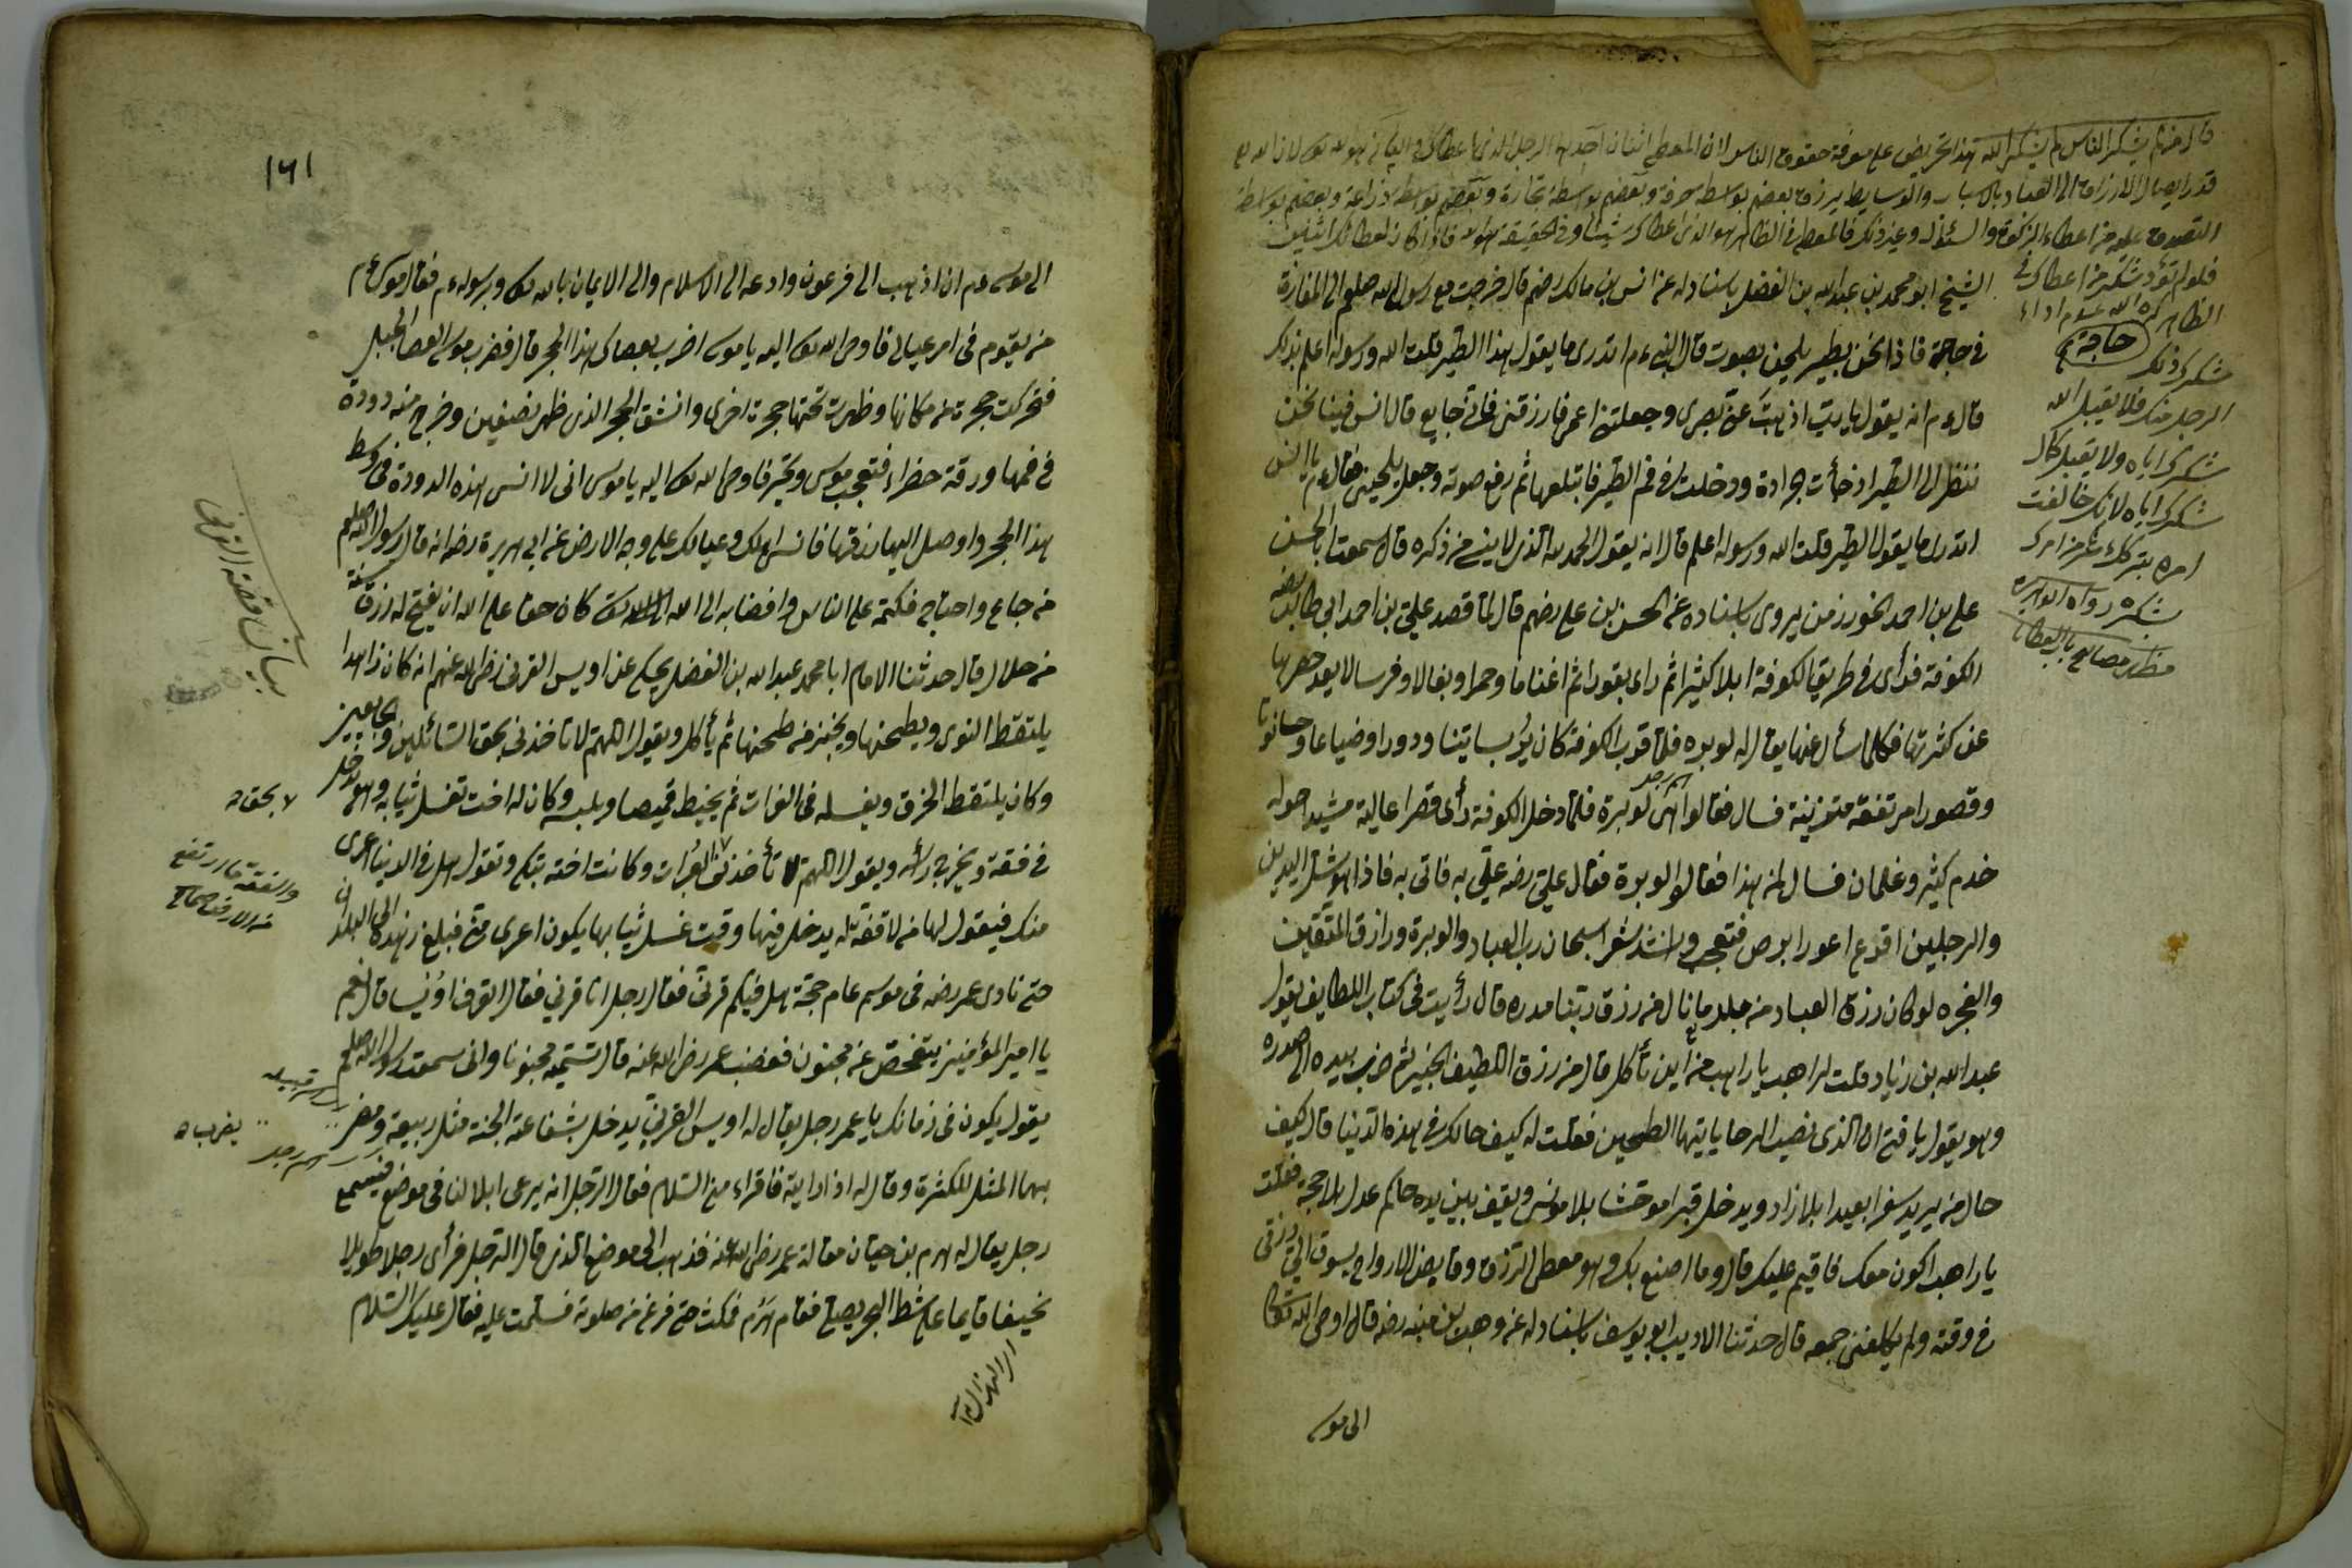 قال من لم يشكر الناس لم يشكر الله هذا تحريض على معرفة حقوق الناس لان المعطى اثنان احدهما الرجل الذى اعطاك والثانى هو الله تعالى لان الله تعالى
قدر ايصال الارزاق الى العباد بالاسباب والوسايط يرزق بعضهم بواسطة حرفة وبعضهم بواسطة تجارة وبعضهم بواسطة زراعة وبعضهم بواسطة
التصدق عليه من اعطاء الزكوة والسئوال وغير ذلك فالمعطى فى الظاهر هو الذى اعطاك شيئا وفى الحقيقة هو الله فاذا كان
فلو لم تؤد شكر من اعطاك فى
الظاهر كره الله عدم اداء
شكرك ذلك
الرجل منك فلا يقبل الله
شكرك اياه ولا يقبل كمال
شكرك اياه لانك خالفت
امره بتركك شكر من امرك
شكره رواه ابو هريرة
مظهر مصابيح باب العطايا
حاجة
الشيخ ابو محمد بن عبد الله بن الفضل باسناد له عن انس بن مالك رضهم قال خرجت مع رسول الله صلعم الى المفازة
فى حاجة فاذا نحن بطير يلحن بصوت قال النبى ءم اتدرى ما يقول هذا الطير قلت الله ورسوله اعلم بذلك
قال ءم انه يقول يا رب اذهبت عنى بصرى وجعلتنى اعمى فارزقنى فانى جايع قال انس فبينا نحن
ننظر الى الطير اذ جأت جرادة ودخلت فى فم الطير فابتلعها ثم رفع صوته وجعل يلحن فقال ءم يا انس
اتدرى ما يقول الطير قلت الله ورسوله اعلم قال انه يقول الحمد لله الذى لا ينسى من ذكره قال سمعت ابا الحسن
على بن احمد يروى باسناده عن الحسن بن على رضهم قال لما قصد على بن ابى طالب رضه
الكوفة فرأى فى طريق الكوفة ابلا كثيرا ثم راى بقورا ثم اغناما وحمرا وبغالا وفرسا لا يعد حصرها
عن كثرتها فكلما سأل عنها يقال له لوبره فلما قرب الكوفة كان يرى بساتينا ودورا وضياعا وحانوتا
وقصورا مرتفعة متزينة فسال فقالوا هى لوبرة فلما دخل الكوفة رأى قصرا عالية مشيدا حوله
اسم رجل
خدم كثير وغلمان فسال لمن هذا فقالوا لوبرة فقال على رضه علىّ به فاتى به فاذا هو شل اليدين
والرجلين اقرع اعور ابرص فتعجب وانشد شعر اسبحان رب العباد والوبرة ورازق المتقين
والفجره لو كان رزق العباد من جلد ما نال من رزق ربنا مدره قال رأيت فى كتاب اللطايف يقول
عبد الله بن زياد قلت لراهب يا راهب من اين تأكل قال من رزق اللطيف الخبير ثم ضرب بيده الى صدره
وهو يقول يا فتى ان الذى نصب الرحا ياتيها الطحين فقلت له كيف حالك فى هذه الدنيا قال كيف
حال من يريد سفرا بعيدا بلا زاد ويدخل قبرا موحشا بلا مونس ويقف بين يدى حاكم عدل بلا حجة فقلت
يا راهب اكون معك فاقيم عليك قال وما اصنع بك وهو معطى الرزق وقابض الارواح يسوق الى رزقى
فى وقته ولم يكلفنى جمعه قال حدثنا الاديب ابو يوسف باسناد له عن وهب بن منبه رضه قال اوحى الله تعالى
الى موسى
١٦١
الى موسى ءم ان اذهب الى فرعون وادعه الى الاسلام والى الايمان بالله تعالى وبرسوله ءم فقال موسى ءم
من يقوم فى امر عيالى فاوحى الله تعالى اليه يا موسى اضرب بعصاك هذا الحجر قال فضرب موسى العصا الجبل
فتحركت حجرة من مكانها وظهرت تحتها حجرة اخرى وانشق الحجر الذى ظهر نصفين وخرج منه دودة
فى فمها ورقة خضراء فتعجب موسى وتحير فاوحى الله تعالى اليه يا موسى انى لا انسى هذه الدودة فى وسط
هذا الحجر واوصل اليها رزقها فانسى اهلك وعيالك على وجه الارض عن ابى هريرة رضه انه قال رسول الله صلعم
من جاع واحتاج فكتمه على الناس وافضا به الى الله تعالى كان حقا على الله ان يفتح له رزق سنة
من حلال قال حدثنا الامام ابا محمد عبد الله بن الفضل يحكى عن اويس القرنى رضى الله عنهم انه كان زاهدا
يلتقط النوى ويطحنها ويخبز من طحنها ثم يأكل ويقول اللهم لا تاخذنى بحق السائلين والجايعين
وكان يلتقط الخرق ويغسله فى الفرات ثم يخيط قميصا ويلبسه وكان له اخت تغسل ثيابه وهو يدخل
فى قفة ويخرج رأسه ويقول اللهم لا تأخذنى العراة وكانت اخته تبكى وتقول هل فى الدنيا اعرى
منك فيقول لها من لا قفة له يدخل فيها وقت غسل ثيابها يكون اعرى منى فبلغ زهده الى البلدان
حتى نادى عمر رضه فى موسم عام حجة هل فيكم قرنى فقال رجل انا قرنى فقال اتعرف اويسا قال نعم
يا امير المؤمنين يتفحص عن مجنون فغضب عمر رضى الله عنه قال تسميه مجنونا وانى سمعت رسول الله صلعم
يقول يكون فى زمانك يا عمر رجل يقال له اويس القرنى يدخل بشفاعته الجنة مثل ربيعة ومضر
بهما المثل للكثرة وقال له اذا رايته فاقراء منى السلام فقال الرجل انه يرعى ابلا لنا فى موضع فسمع
رجل يقال له هرم بن حيان مقالة عمر رضى الله عنه فذهب الى موضع الذى قال الرجل فرأى رجلا طويلا
نحيفا قايما على شط البحر يصلى فقام هرم فمكث حتى فرغ من صلوته فسلمت عليه فقال عليك السلام
بيان قصة القرنى
لا بحق
والقفة ما ارتفع
من الارض صحاح
اسم قبيله
يضرب
اسم رجل